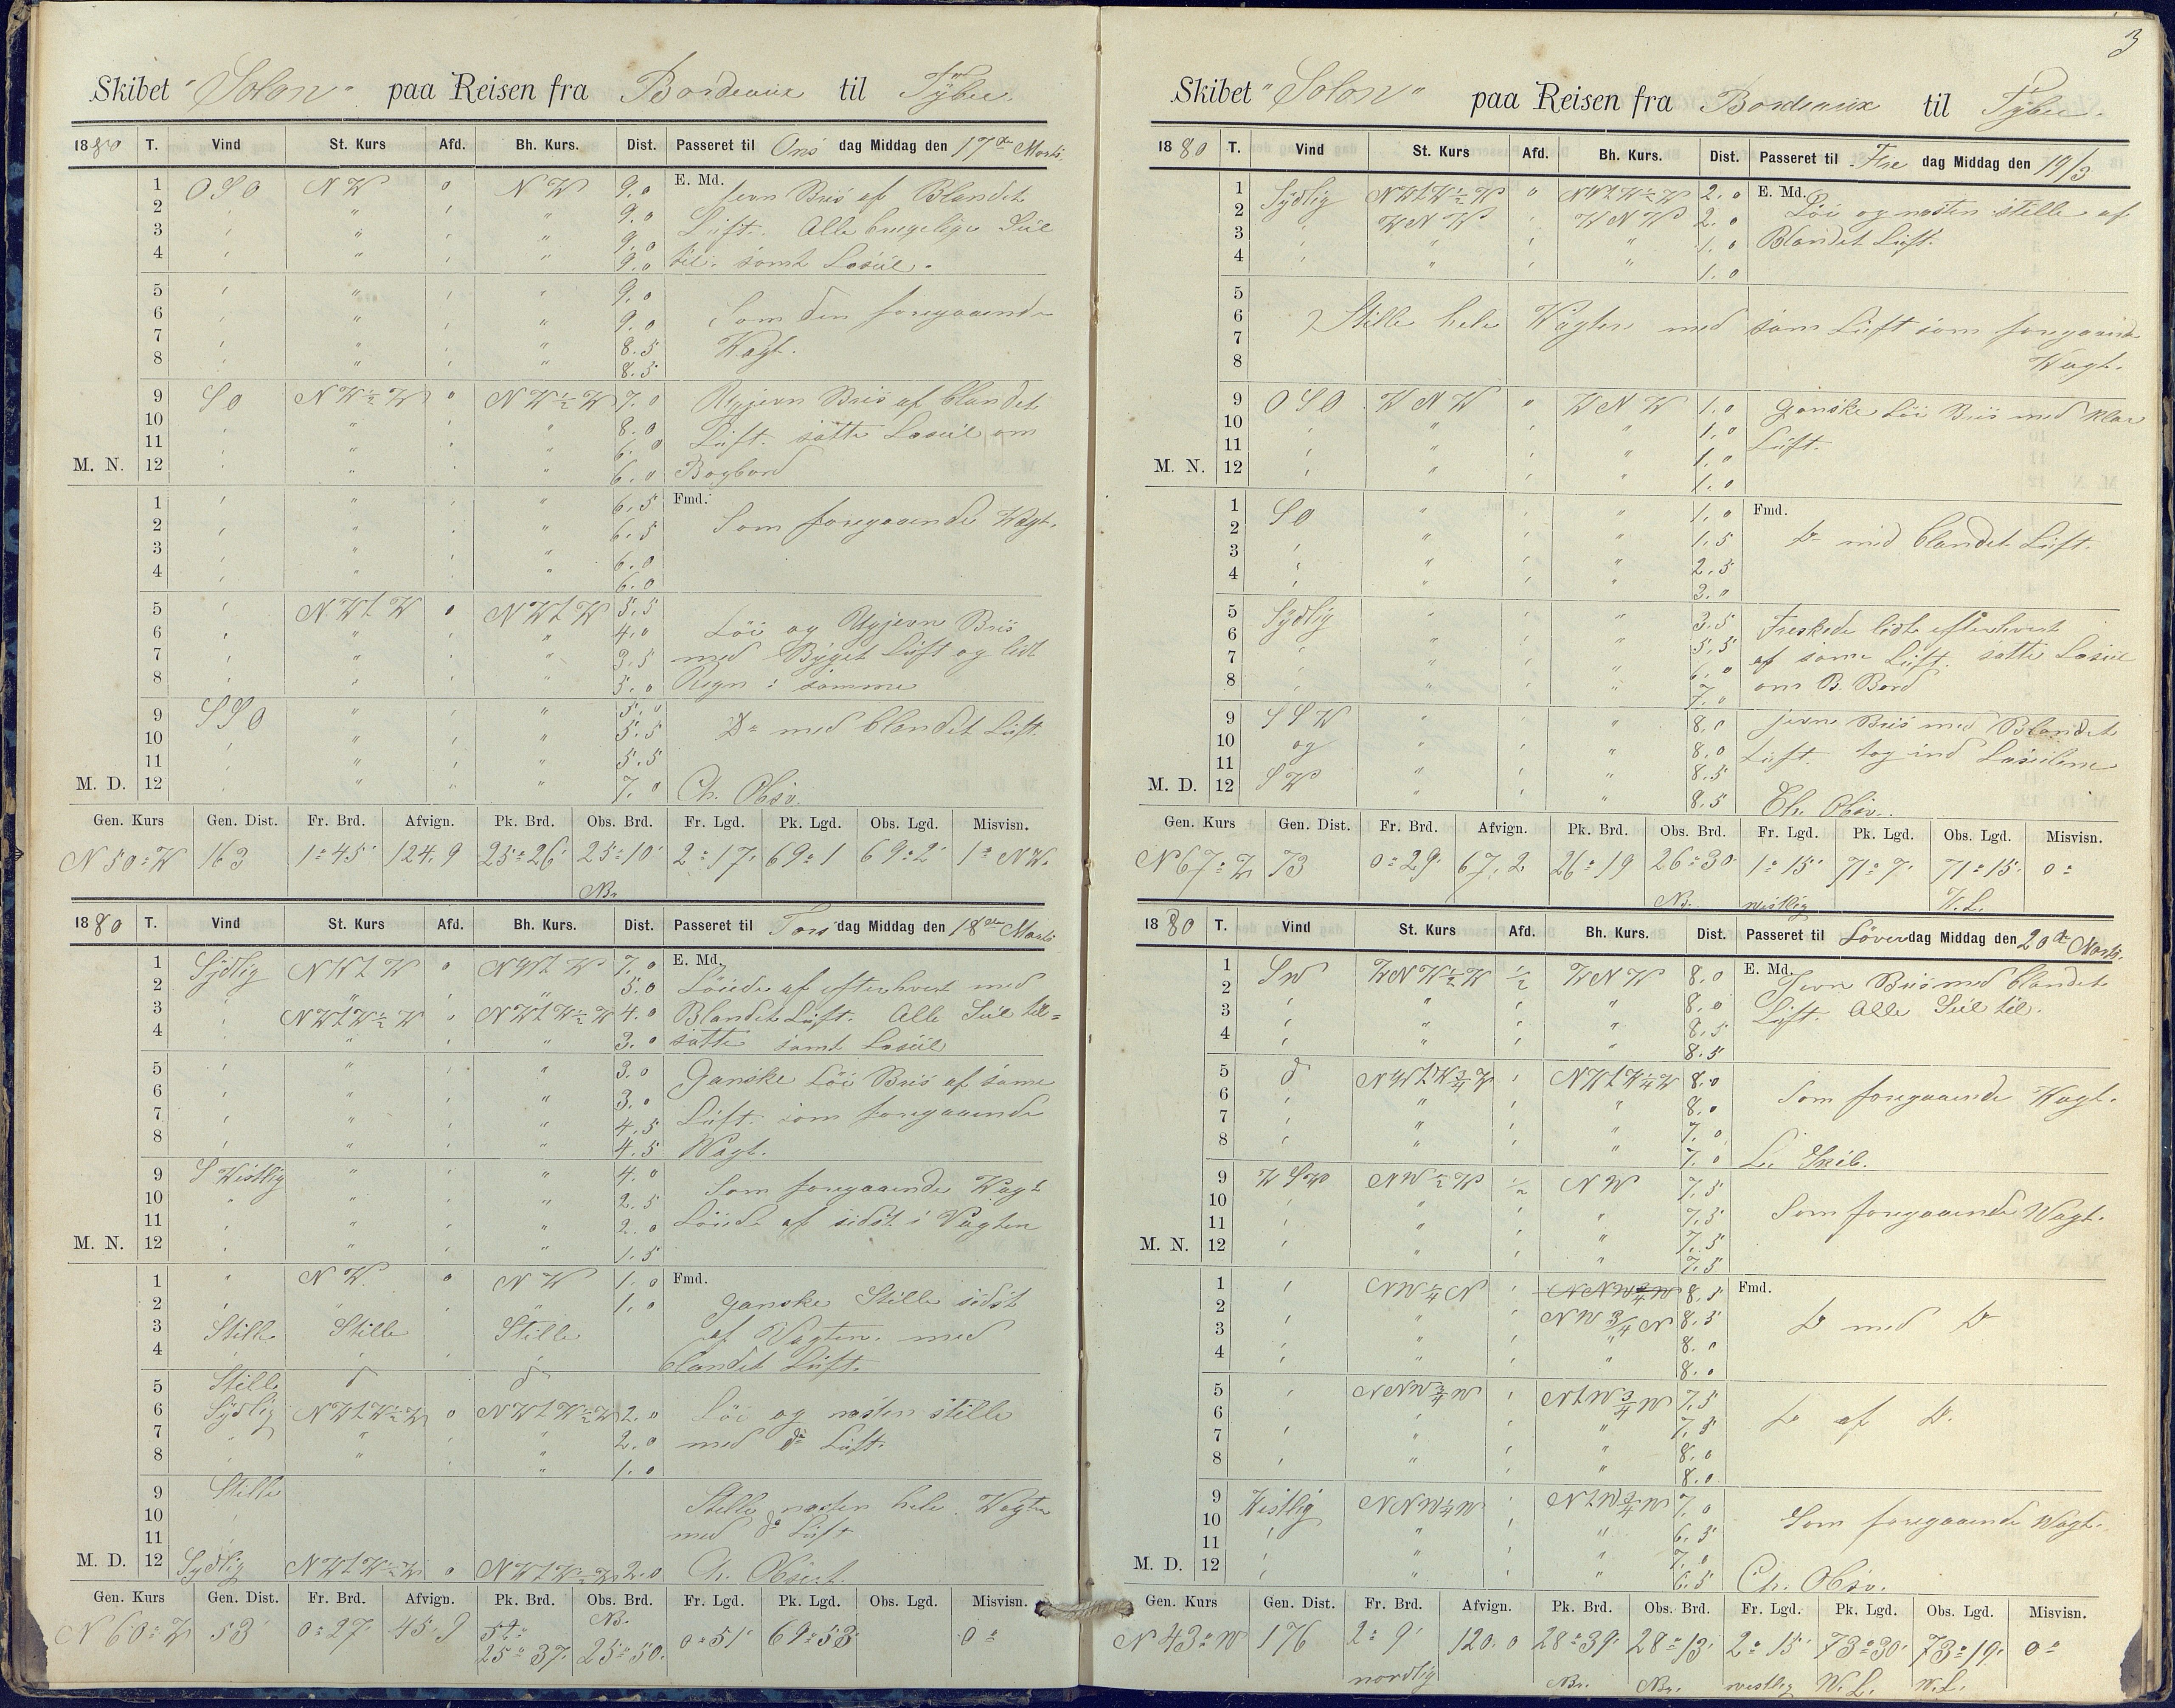 Skibet "Solon" paa Reisen fra Bordeaux til Tÿbee.
1880 T. Vind St. Kurs Afd. Bh. Kurs. Dist. Passeret til Ons dag Middag den 17de Marts
1 OSO NW 0 NW 9.0 E. Md. Jevn Bris af Blandet
2 ' " ' " 9.0 Lüft. Alle brugelige Seil
3 ' " ' " 9.0
4 ' " ' " 9.0 til. samt Læseil.
5 ' " ' " 9.0
6 ' " ' " 9.0 Som den foregaaende
7 ' " ' " 8.5 Vagt.
8 ' " ' " 8.5
9 SO NW½W 0 NW½W 7.0 Ujevn Bris af blandet
10 ' " ' " 8.0 Lüft. satte Læseil om
11 ' " ' " 6.0
M. N. 12 ' " ' " 6.0 Bagbord
1 ' " ' " 6.5 Fmd.
2 ' " ' " 6.5 Som foregaaende Vagt.
3 ' " ' " 6.0
4 ' " ' " 6.0
5 ' NWtW 0 NWtW 5.5
6 ' " ' " 4.0 Löi og Ujevn Bris
7 ' " ' " 3.5 med Bÿget Lüft og lidt
8 ' " ' " 5.0 Regn i samme
9 SSO " ' " 5.0
10 ' " ' " 5.5 Do med blandet Lüft.
11 ' " ' " 5.5
M. D. 12 ' " ' " 7.0 Ch. Obsv.
Gen. Kurs Gen. Dist. Fr. Brd. Afvign. Pk. Brd. Obs. Brd. Fr. Lgd. Pk. Lgd. Obs. Lgd. Misvisn.
N 50° W 163 1° 45' 124.9 25° 26' 25° 10' 2° 17' 69° 1 69° 2' 1° NW.
Br.
1880 T. Vind St. Kurs Afd. Bh. Kurs. Dist. Passeret til Tors dag Middag den 18de Marts
1 Sÿdlig NWtW 0 NWtW 7.0 E. Md.
2 ' " ' " 5.0 Löiede af efterhvert med
3 ' NWtW½W ' NWtW½W 4.0 Blandet Lüft. Alle Seil til=
4 ' " ' " 3.0 satte samt Læseil
5 ' " ' " 3.0 Ganske Löi Bris af same
6 ' " ' " 3.0
7 ' " ' " 4.5 Lüft som foregaaende
8 ' " ' " 4.5 Vagt.
9 S Westlig " ' " 4.0 Som foregaaende Vagt
10 " " ' " 2.5
11 ' " ' " 2.0 Löiede af sidst i Vagten
M. N. 12 ' " ' " 1.5
1 " NW 0 NW 1.0 Fmd.
2 ' " ' " 1.0 Ganske Stille sidst
3 Stille Stille Stille af Vagten. med
4 ' ' ' blandet Lüft.
5 Stille d d
6 Sÿdlig NWtW½W 0 NWtW½W 2.0 Löi og næsten stille
7 ' " ' " 2.0 med do Lüft.
8 ' " ' " 1.0
9 Stille Stille næsten hele Vagten
10 ' med do Lüft
11
M. D. 12 Sydlig NWtW½W 0 NWtW½W 2.0 Ch. Obsert.
Gen. Kurs Gen. Dist. Fr. Brd. Afvign. Pk. Brd. Obs. Brd. Fr. Lgd. Pk. Lgd. Obs. Lgd. Misvisn.
Br.
N 60° W 53' 0° 27' 45.9 25° 37' 25° 50' 0° 51' 69° 53' 0°
3
Skibet "Solon" paa Reisen fra Bordeaux til Tÿbee.
1880 T. Vind St. Kurs Afd. Bh. Kurs. Dist. Passeret til Fre dag Middag den 19/3
1 Sÿdlig NWtW½W 0 NWtW½W 2.0 E. Md.
2 ' WNW ' WNW 2.0 Löi og næsten stille af
3 ' " ' " 1.0 Blandet Lüft.
4 ' " ' " 1.0
5
6 Stille hele Vagten med sam Lüft som foregaaende
7
8 Vagt.
9 OSO WNW 0 WNW 1.0 ganske Löi Bris med klar
10 ' " ' " 1.0
11 ' " ' " 1.0 Lüft.
M. N. 12 ' " ' " 1.0
1 SO " ' " 1.0 Fmd.
2 ' " ' " 1.5 Do med blandet Lüft.
3 ' " ' " 2.5
4 ' " ' " 3.0
5 Sÿdlig " ' " 3.5 Freskede lidt efterhvert
6 ' " ' " 5.5
7 ' " ' " 6.0 af same Lüft. satte Læseil
8 ' " ' " 7.0 om B. Bord
9 SSW " ' " 8.0 jevn Bris med Blandet
10 og " ' " 8.0 Lüft. tog ind Læseilene
11 " ' " 8.5
M. D. 12 SW " ' " 8.5 Ch. Obsv.
Gen. Kurs Gen. Dist. Fr. Brd. Afvign. Pk. Brd. Obs. Brd. Fr. Lgd. Pk. Lgd. Obs. Lgd. Misvisn.
N 67° W 73 0° 29' 67.2 26° 19 26° 30' 1° 15' 71° 7' 71° 15' 0°
Br. westlig W. L.
1880 T. Vind St. Kurs Afd. Bh. Kurs. Dist. Passeret til Löver dag Middag den 20de Marts.
1 SW WNW½W ½ WNW 8.0 E. Md.
2 ' " ' " 8.0 Jevn Bris med blandet
3 ' " ' " 8.5 Lüft. Alle Seil til.
4 ' " ' " 8.5
5 d NWtW¾W ' NWtW¼W 8.0
6 ' " ' " 8.0 Som foregaaende Vagt.
7 ' " ' " 7.0
8 ' " ' " 7.0 Skib.
9 WSW NW½W ½ NW 7.5
10 ' " ' " 7.5 Som foregaaende Vagt.
11 ' " ' " 7.5
M. N. 12 ' " ' " 7.5
1 ' NW¼N ' 8.5 Fmd.
2 ' " ' NW¾N 8.5 Do med Do
3 ' " ' " 8.0
4 ' " ' " 8.0
5 ' NNW¾W ' NtW¾W 7.5
6 ' ' ' " 7.5 Do af Do.
7 ' " ' " 8.0
8 ' " ' " 8.0
9 Westlig NNW¼W ' NtW¾W 7.0
10 ' " ' " 6.5 Som foregaaende Vagt.
11 ' " ' " 7.0
M. D. 12 ' " ' " 6.5 Ch. Obsv.
Gen. Kurs Gen. Dist. Fr. Brd. Afvign. Pk. Brd. Obs. Brd. Fr. Lgd. Pk. Lgd. Obs. Lgd. Misvisn.
N 43° W 176 2° 9' 120.0 28° 39' 28° 13' 2° 15' 73° 30' 73° 19' 0°
nordlig Br. Br. westlig W. L. W. L.